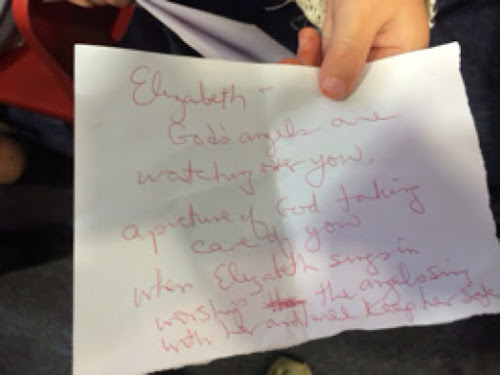 Elizabeth -
God's angels are
watching over you.
a picture of God taking
care of you
when Elizabeth sings in
worship the angels sing
with her and will keep her safe